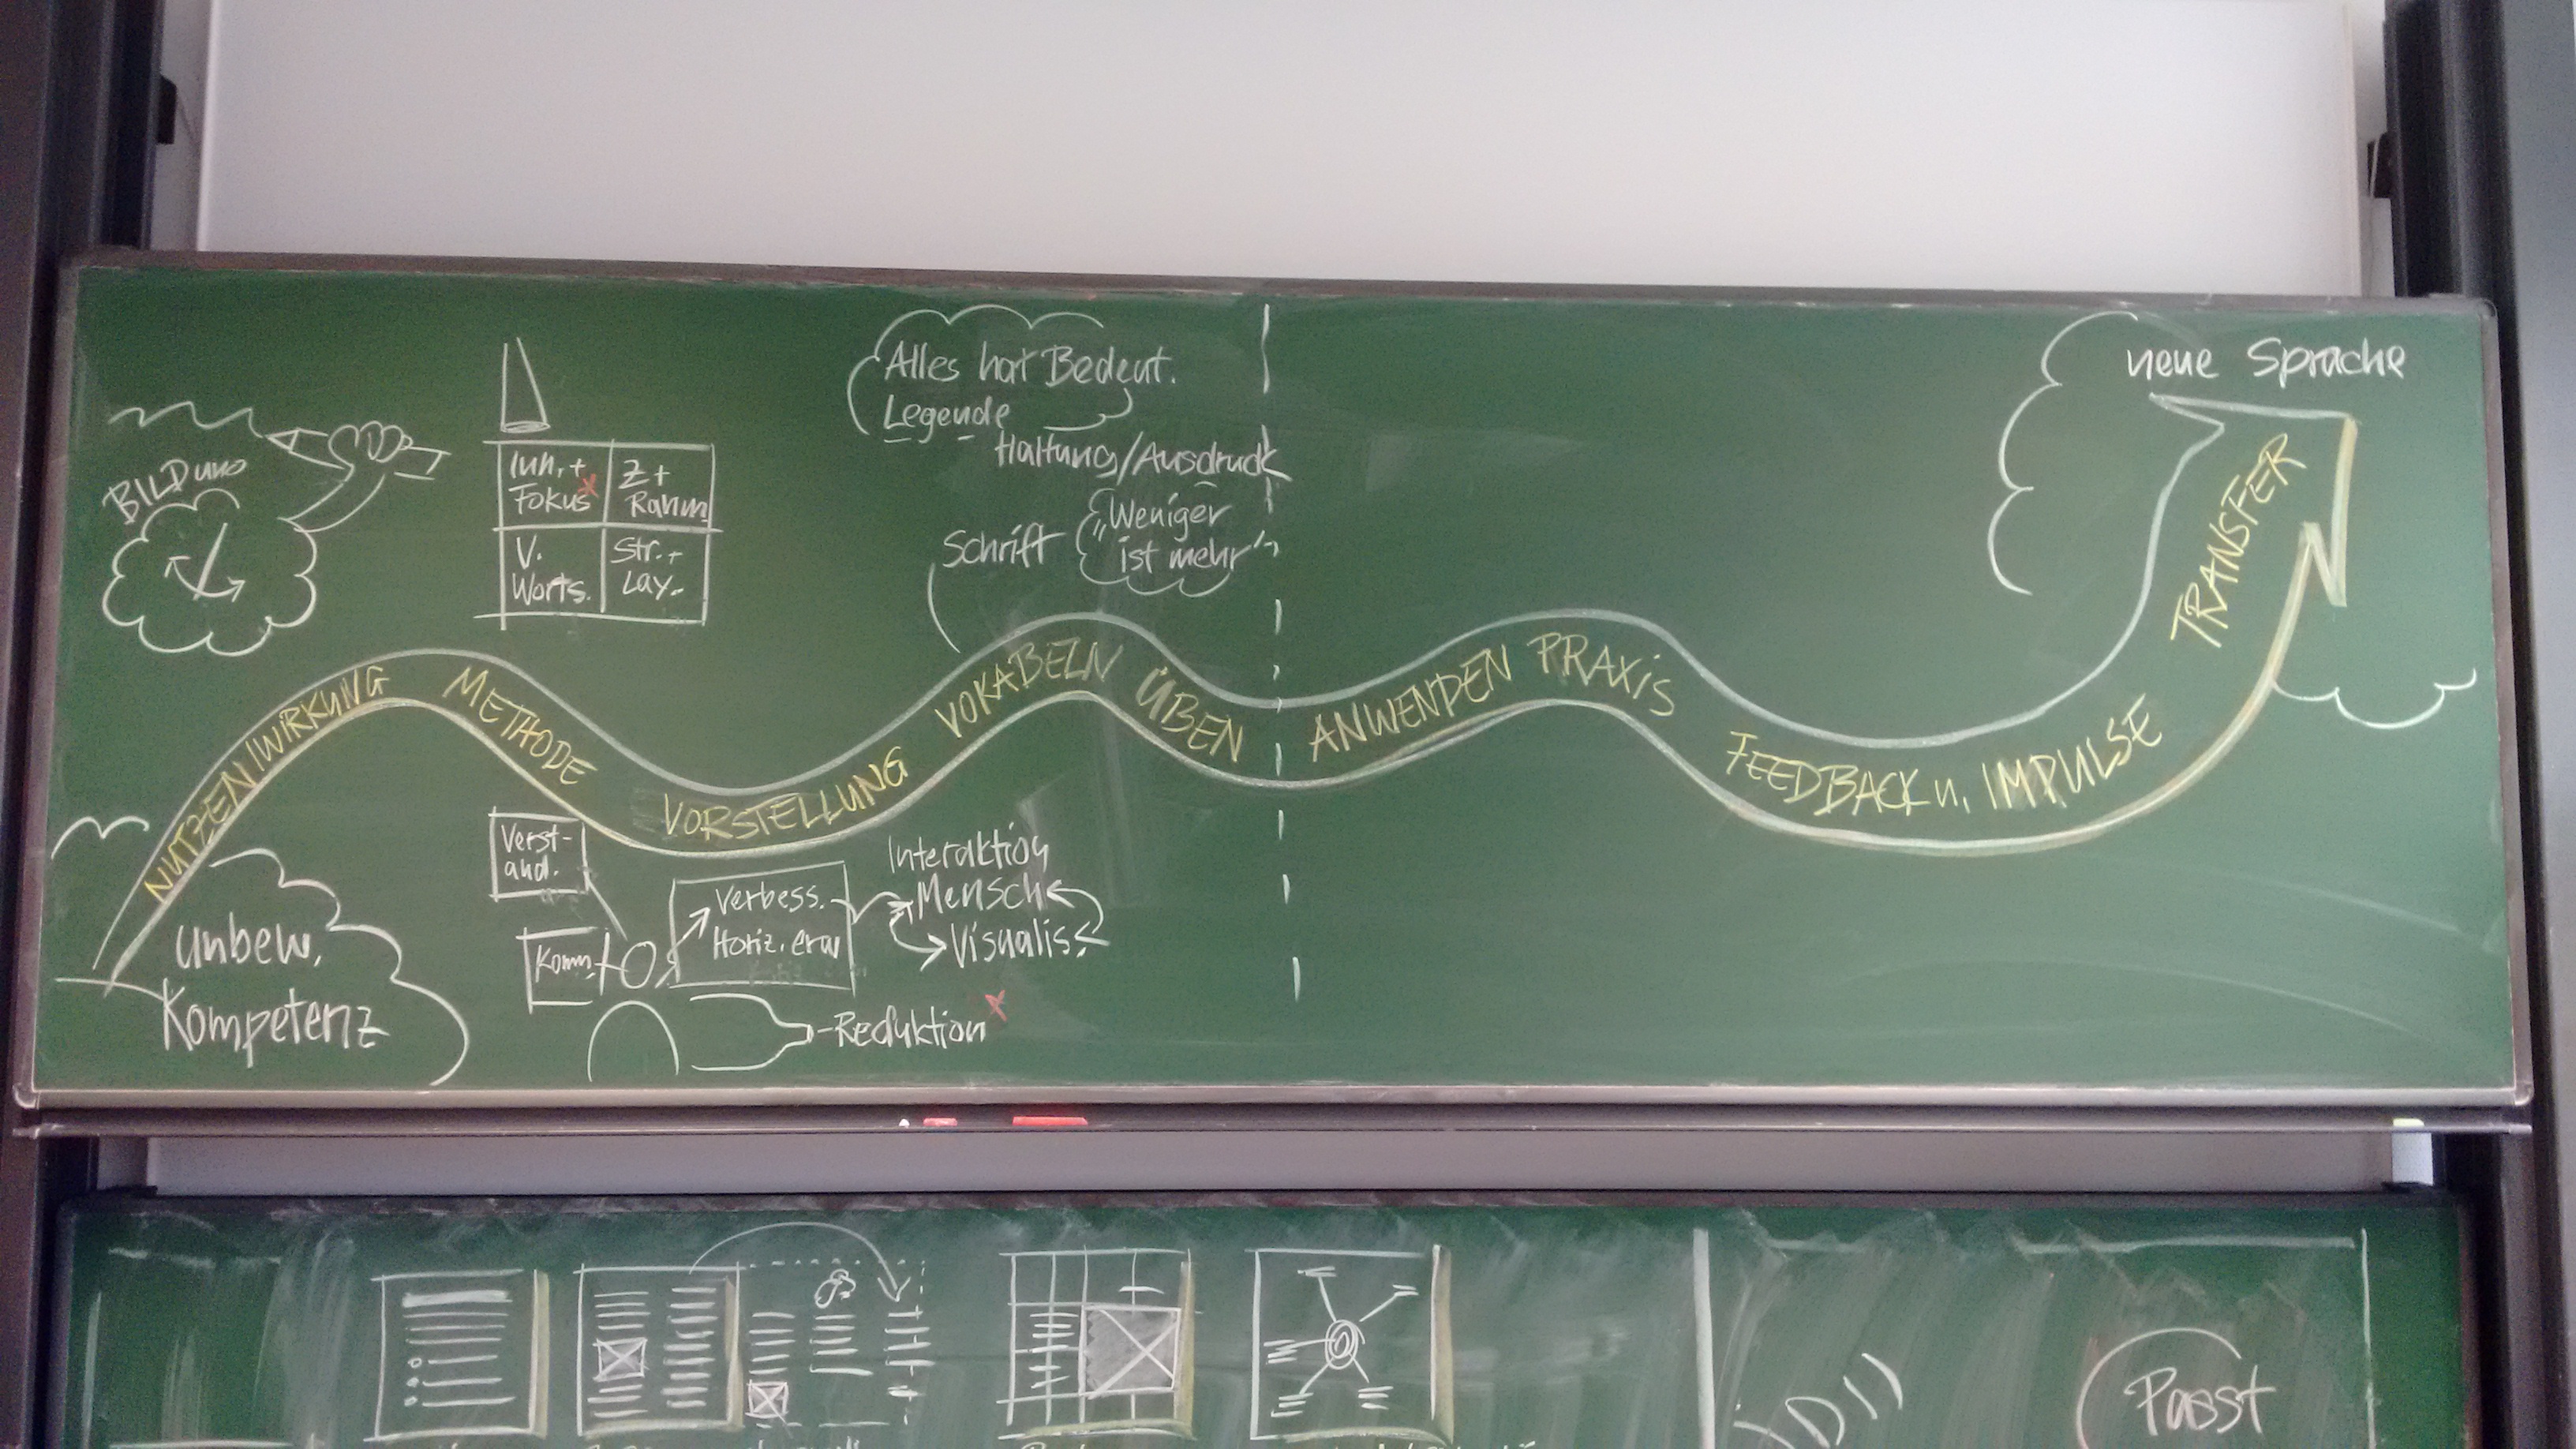 BILDung
Inh. +
Fokus x
Z +
Rahm
V.
Worts.
Str. +
Lay.
Alles hat Bedeut.
Legende
Haltung/Ausdruck
Schrift
"Weniger
ist mehr"
neue Sprache
NUTZEN/WIRKUNG
METHODE
VORSTELLUNG
VOKABELN
ÜBEN
ANWENDEN PRAXIS
FEEDBACK u. IMPULSE
TRANSFER
unbew.
Kompetenz
Verst-
and.
Komm.
Verbess.
Horiz. erw
Interaktion
Mensch
Visualis.
-Reduktion x
Passt